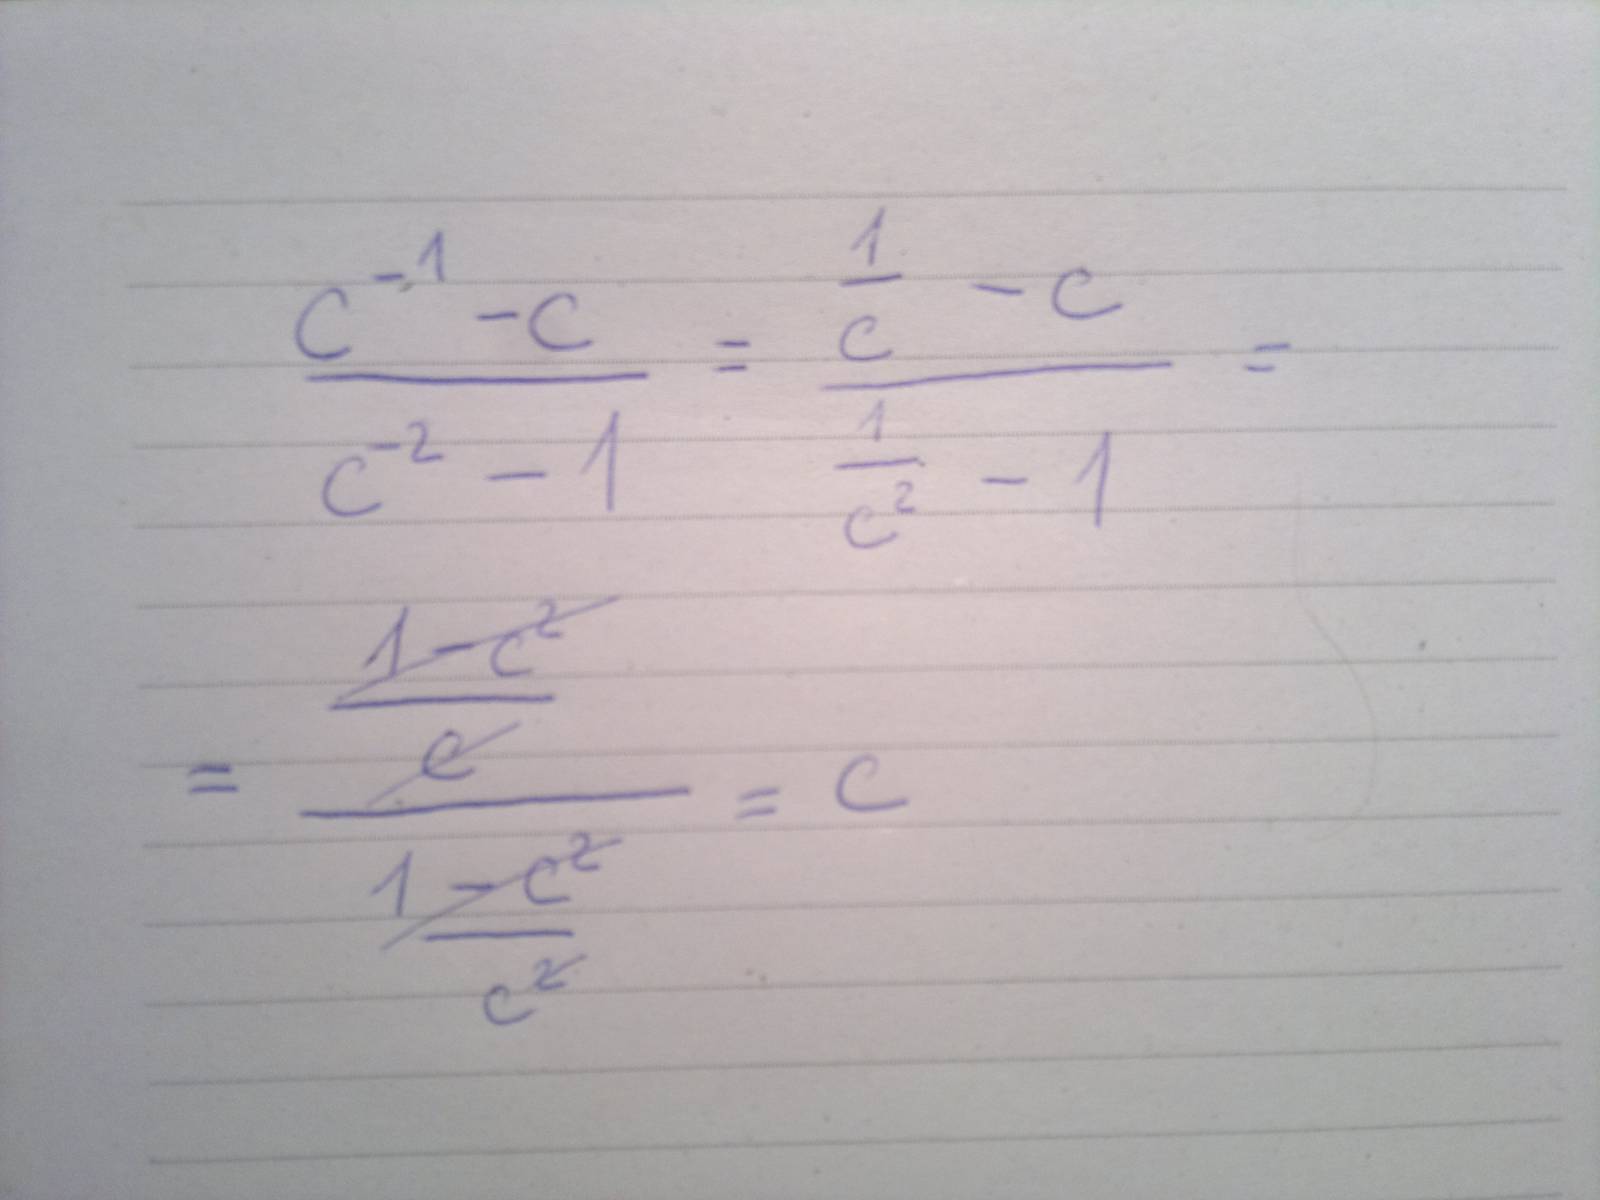 (c⁻¹ - c)/(c⁻² - 1) = (1/c - c)/(1/c² - 1) =
= ((1 - c²)/c)/((1 - c²)/c²) = c